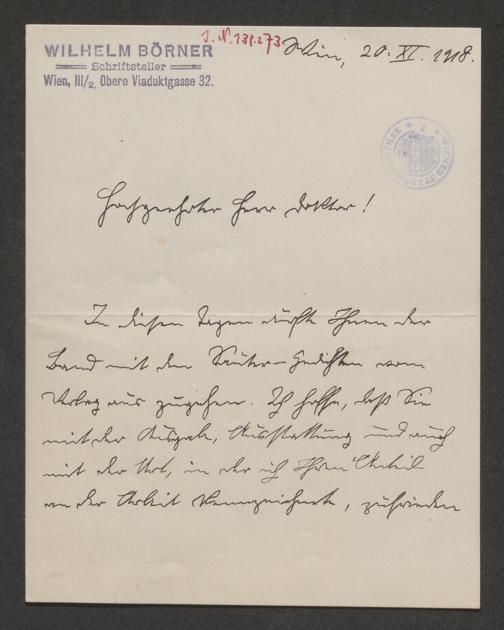 J. N. 131.273
WILHELM BÖRNER
Schriftsteller
Wien, III/2, Obere Viaduktgasse 32.
Wien, 20. XI. 1918.
Hochgeehrter Herr Doktor!
In diesen Tagen dürfte Ihnen der
Band mit den Sauter-Gedichten vom
Verlag aus zugehen. Ich hoffe, daß Sie
mit der Ausgabe, Ausstattung und auch
mit der Art, in der ich Ihren Anteil
an der Arbeit kennzeichnete, zufrieden